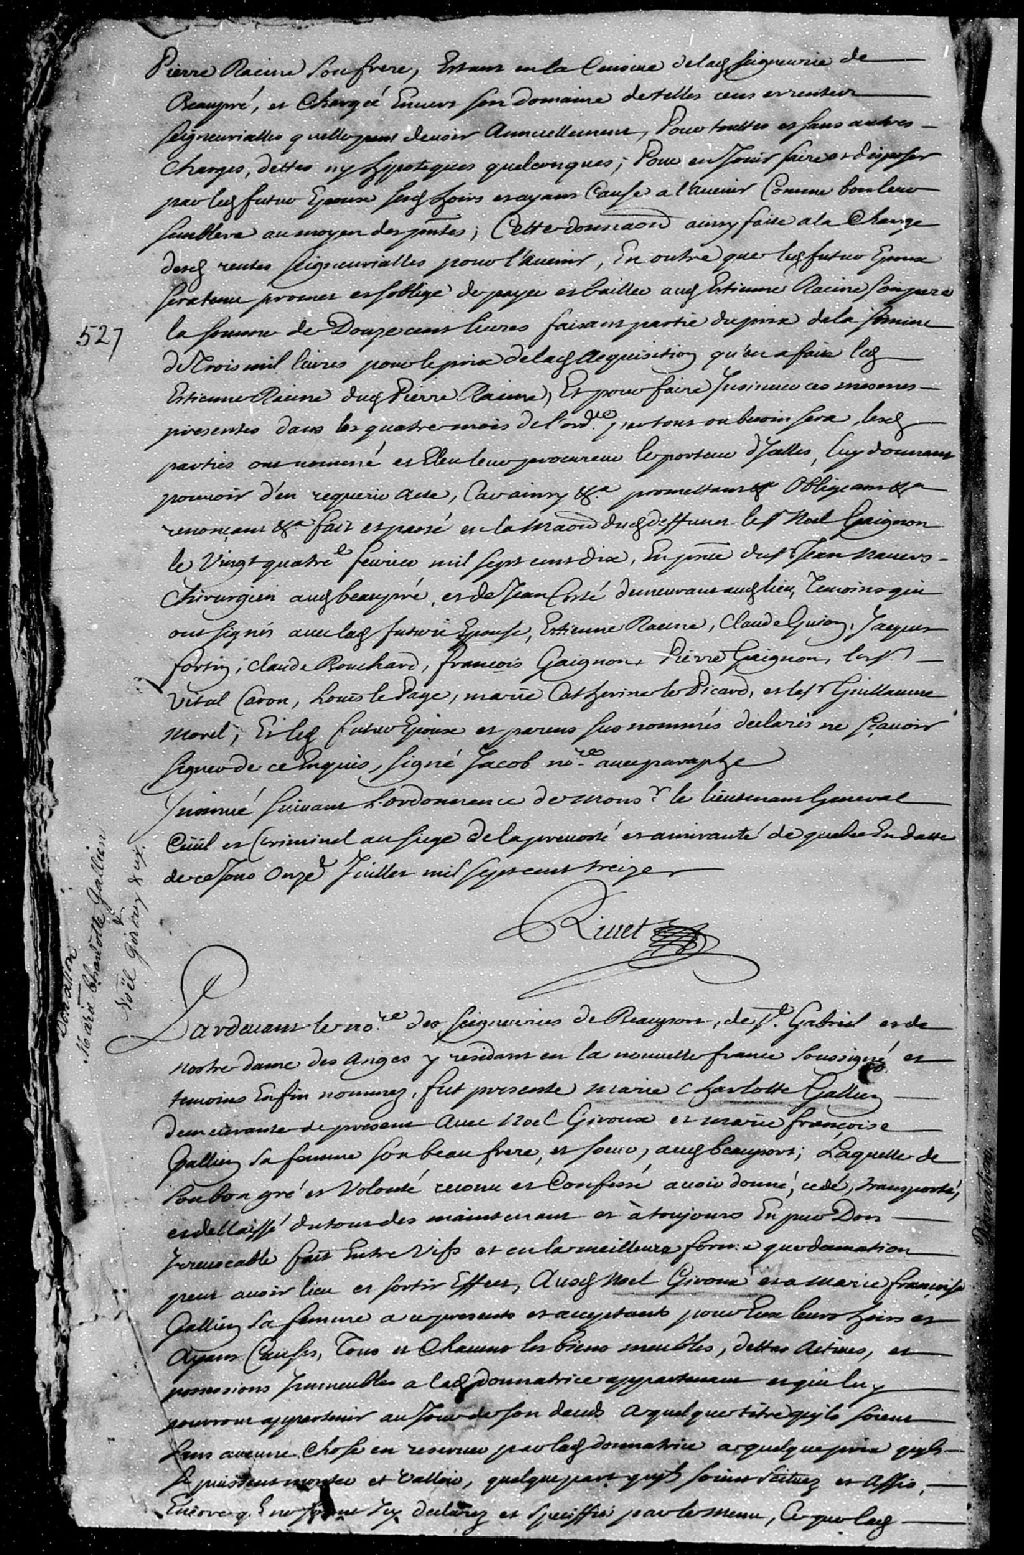 Pierre Racine son frere, Estant en la Censive delad seigneurie de
Beaupré, et Chargé Envers son domaine de telles cens et rentes
seigneurialles quelles peuvent devoir Annuellement, Pour touttes et sans autres
Charges, dettes ny hypoteques quelconques; Pour en Jouir faire et disposer
par led futur Epoux ses hoirs et ayans Cause a l'avenir Comme bon leur
semblera au moyen des pntes; Cette donnaon ainsy faite a la Charge
desd rentes seigneurialles pour l'avenir, En outre que led futur Epoux
sera tenu promet et s'oblige de payer et bailler aud Estienne Racine son pere
527
la somme de Douze cent livres faisant partie du prix de la somme
de Trois mil livres pour le prix delad Acquisition qu'en a faite led
Estienne Racine dud Pierre Racine, Et pour faire Insinuer ces mesmes
presentes dans les quatre mois de l'ordce partout ou besoin sera, lesd
parties ont nommé et Eleu leur procureur le porteur d'Icelles, luy donnant
pouvoir d'en requerir Acte, Car ainsy &a promettant &a Obligeant &a
renonçant &a fait et passé en la Maon dud deffunt le Sr Noel Gaignon
le Vingt quatre fevrier mil sept cent dix, En pnce du Sr Jean
Chirurgien aud beaupré, et de Jean Costé demeurant aud lieu, Temoins qui
ont signés avec lad future Epouse, Estienne Racine, Claude Guion, Jacques
fortin, Claude Bouchard, françois Gaignon, Pierre Gaignon, le Sr
Vital Caron, Louis le Page, marie Catherine le Picard, et le Sr Guillaume
Morel; Et led futur Epoux et parens sus nommés declarés ne sçavoir
signer de ce Enquis, signé Jacob nore avec paraphe
Insinué suivant l'ordonnence de Monsr le lieutenant General
Civil et Criminel au siege de la prevosté et amirauté de quebec En datte
de ce Jour Onze Juillet mil sept cent treize
Rivet
Donation
Marie Charlotte Gallien
&
Noël Giroux & ux.
Pardevant le nore des seigneuries de Beauport, de St Gabriel et de
Nostre dame des Anges y residant en la nouvelle france soussigné et
temoins Enfin nommez, fut presente Marie Charlotte Gallien
demeurante de present Avec Noel Giroux et Marie françoise
Gallien sa femme son beau frere, et soeur, aud beauport; Laquelle de
son bon gré et Volonté reconu et Confessé avoir donné, cedé, transporté,
et dellaissé du tout des maintenant et à toujours En pur Don
Irrevocable fait Entre Vifs et en la meilleure forme que donnation
peut avoir lieu et sortir Effet, Ausd Noel Giroux et a Marie françoise
Gallien sa femme a ce presents et acceptants pour Eux leurs hoirs et
Ayans Causes, Tous et Chacuns les biens meubles, dettes Actives, et
possessions Immeubles a lad donnatrice appartenant et qui luy
pourront appartenir au Jour de son deceds a quelque titre quils soient
sans aucune Chose en reserver par lad donnatrice a quelque prix quils
se puissent monter et Valloir, quelque part quils soient situez et Assis,
Encore que Ene soyent Icy declarez et speciffiés par le menu, Ce que lad